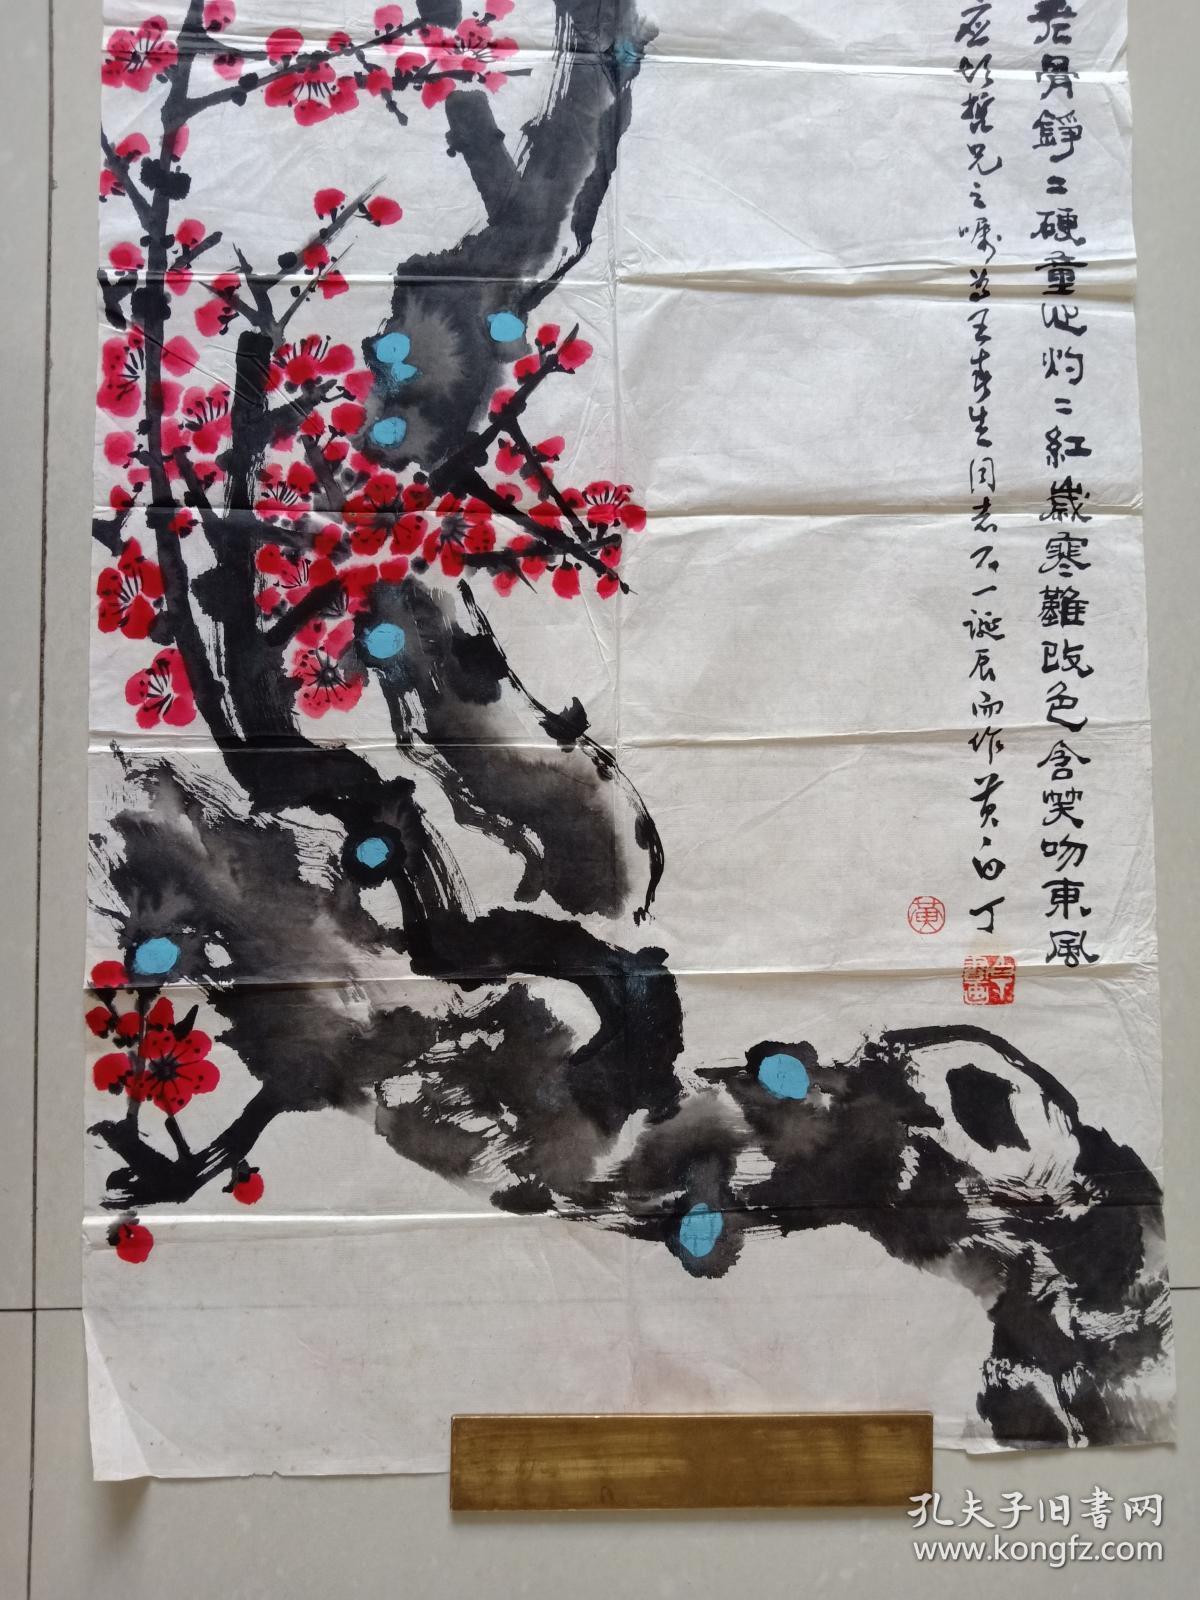 老骨錚〻硬童心灼〻紅歲寒難改色含笑吻東風
应哲兄之嘱为王春生同志不一诞辰而作黄白丁
黄
孔夫子旧书网
www.kongfz.com